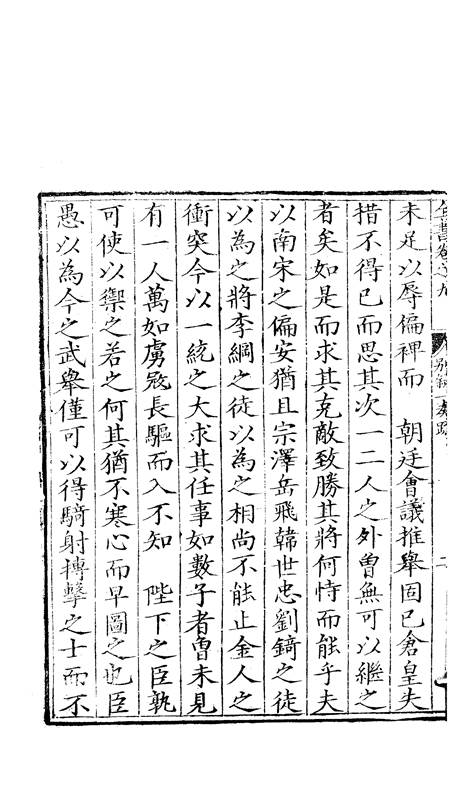 全書卷之九 別錄一 奏疏 二
未足以辱偏裨而 朝廷會議推舉固已倉皇失
措不得已而思其次一二人之外曾無可以繼之
者矣如是而求其克敵致勝其將何恃而能乎夫
以南宋之偏安猶且宗澤岳飛韓世忠劉錡之徒
以為之將李綱之徒以為之相尚不能止金人之
衝突今以一統之大求其任事如數子者曾未見
有一人萬如虜寇長驅而入不知 陛下之臣孰
可使以禦之若之何其猶不寒心而早圖之也臣
愚以為今之武舉僅可以得騎射搏擊之士而不